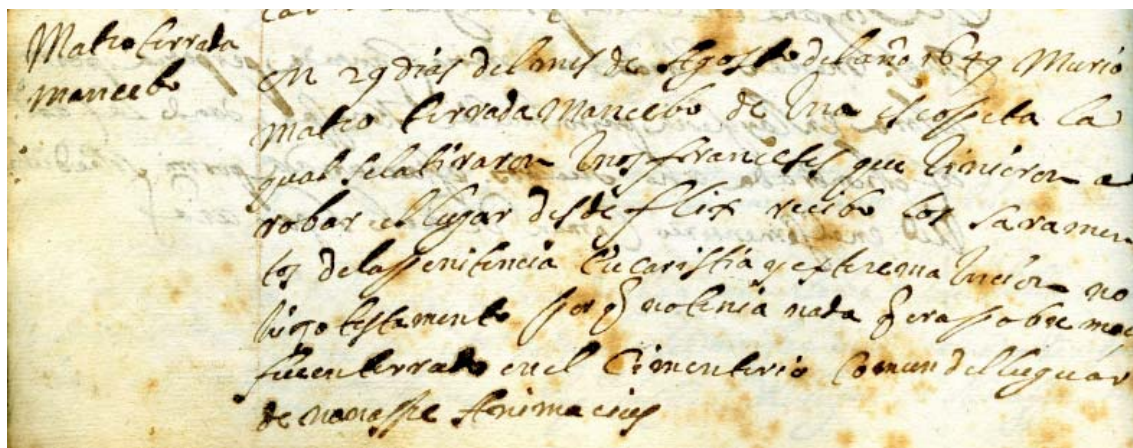 Mateo terrada
mancebo
en 29 dias del mes de Agosto del año 1649 Murio
mateo terrada Mancebo de Una escopeta la
qual se la tiraron Unos franceses que Vinieron a
robar el lugar desde flix recibio los Saramen
tos de la penitencia Eucaristia y exterema Uncion no
hizo testamento por q no tenia nada q era pobre
fue enterrado en el Cimenterio Comun del luguar
de nonaspe